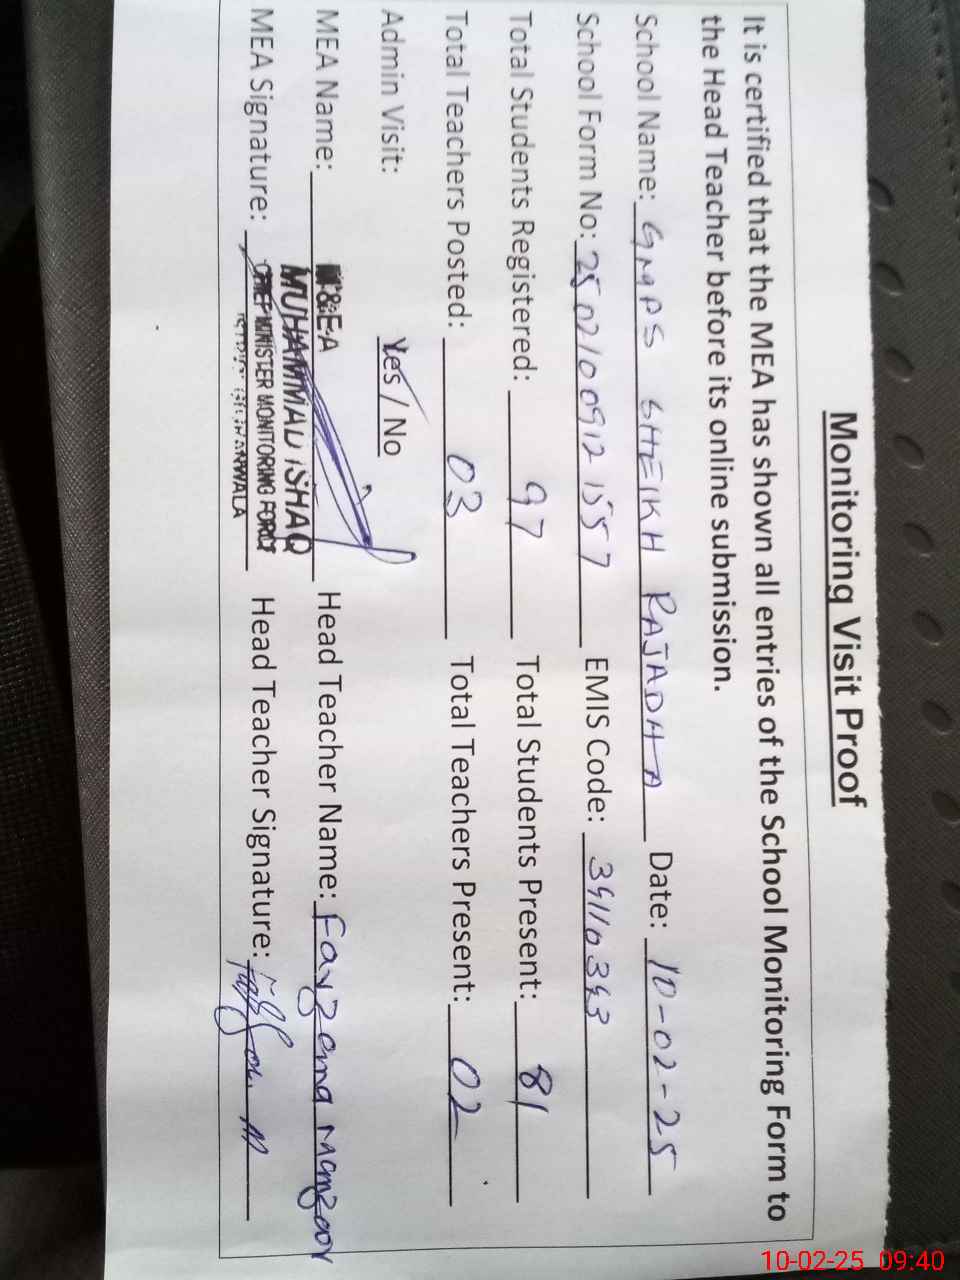 Monitoring Visit Proof
It is certified that the MEA has shown all entries of the School Monitoring Form to
the Head Teacher before its online submission.
School Name: GMPS SHEIKH RAJADHA Date: 10-02-25
School Form No: 2502100912157 EMIS Code: 39110343
Total Students Registered: 97 Total Students Present: 81
Total Teachers Posted: 03 Total Teachers Present: 02
Admin Visit: Yes / No
MEA Name: M&EA MUHAMMAD ISHAQ Head Teacher Name: Fayz Manzoor
MEA Signature: CHIEF MINISTER MONITORING FORCE Head Teacher Signature:
10-02-25 09:40